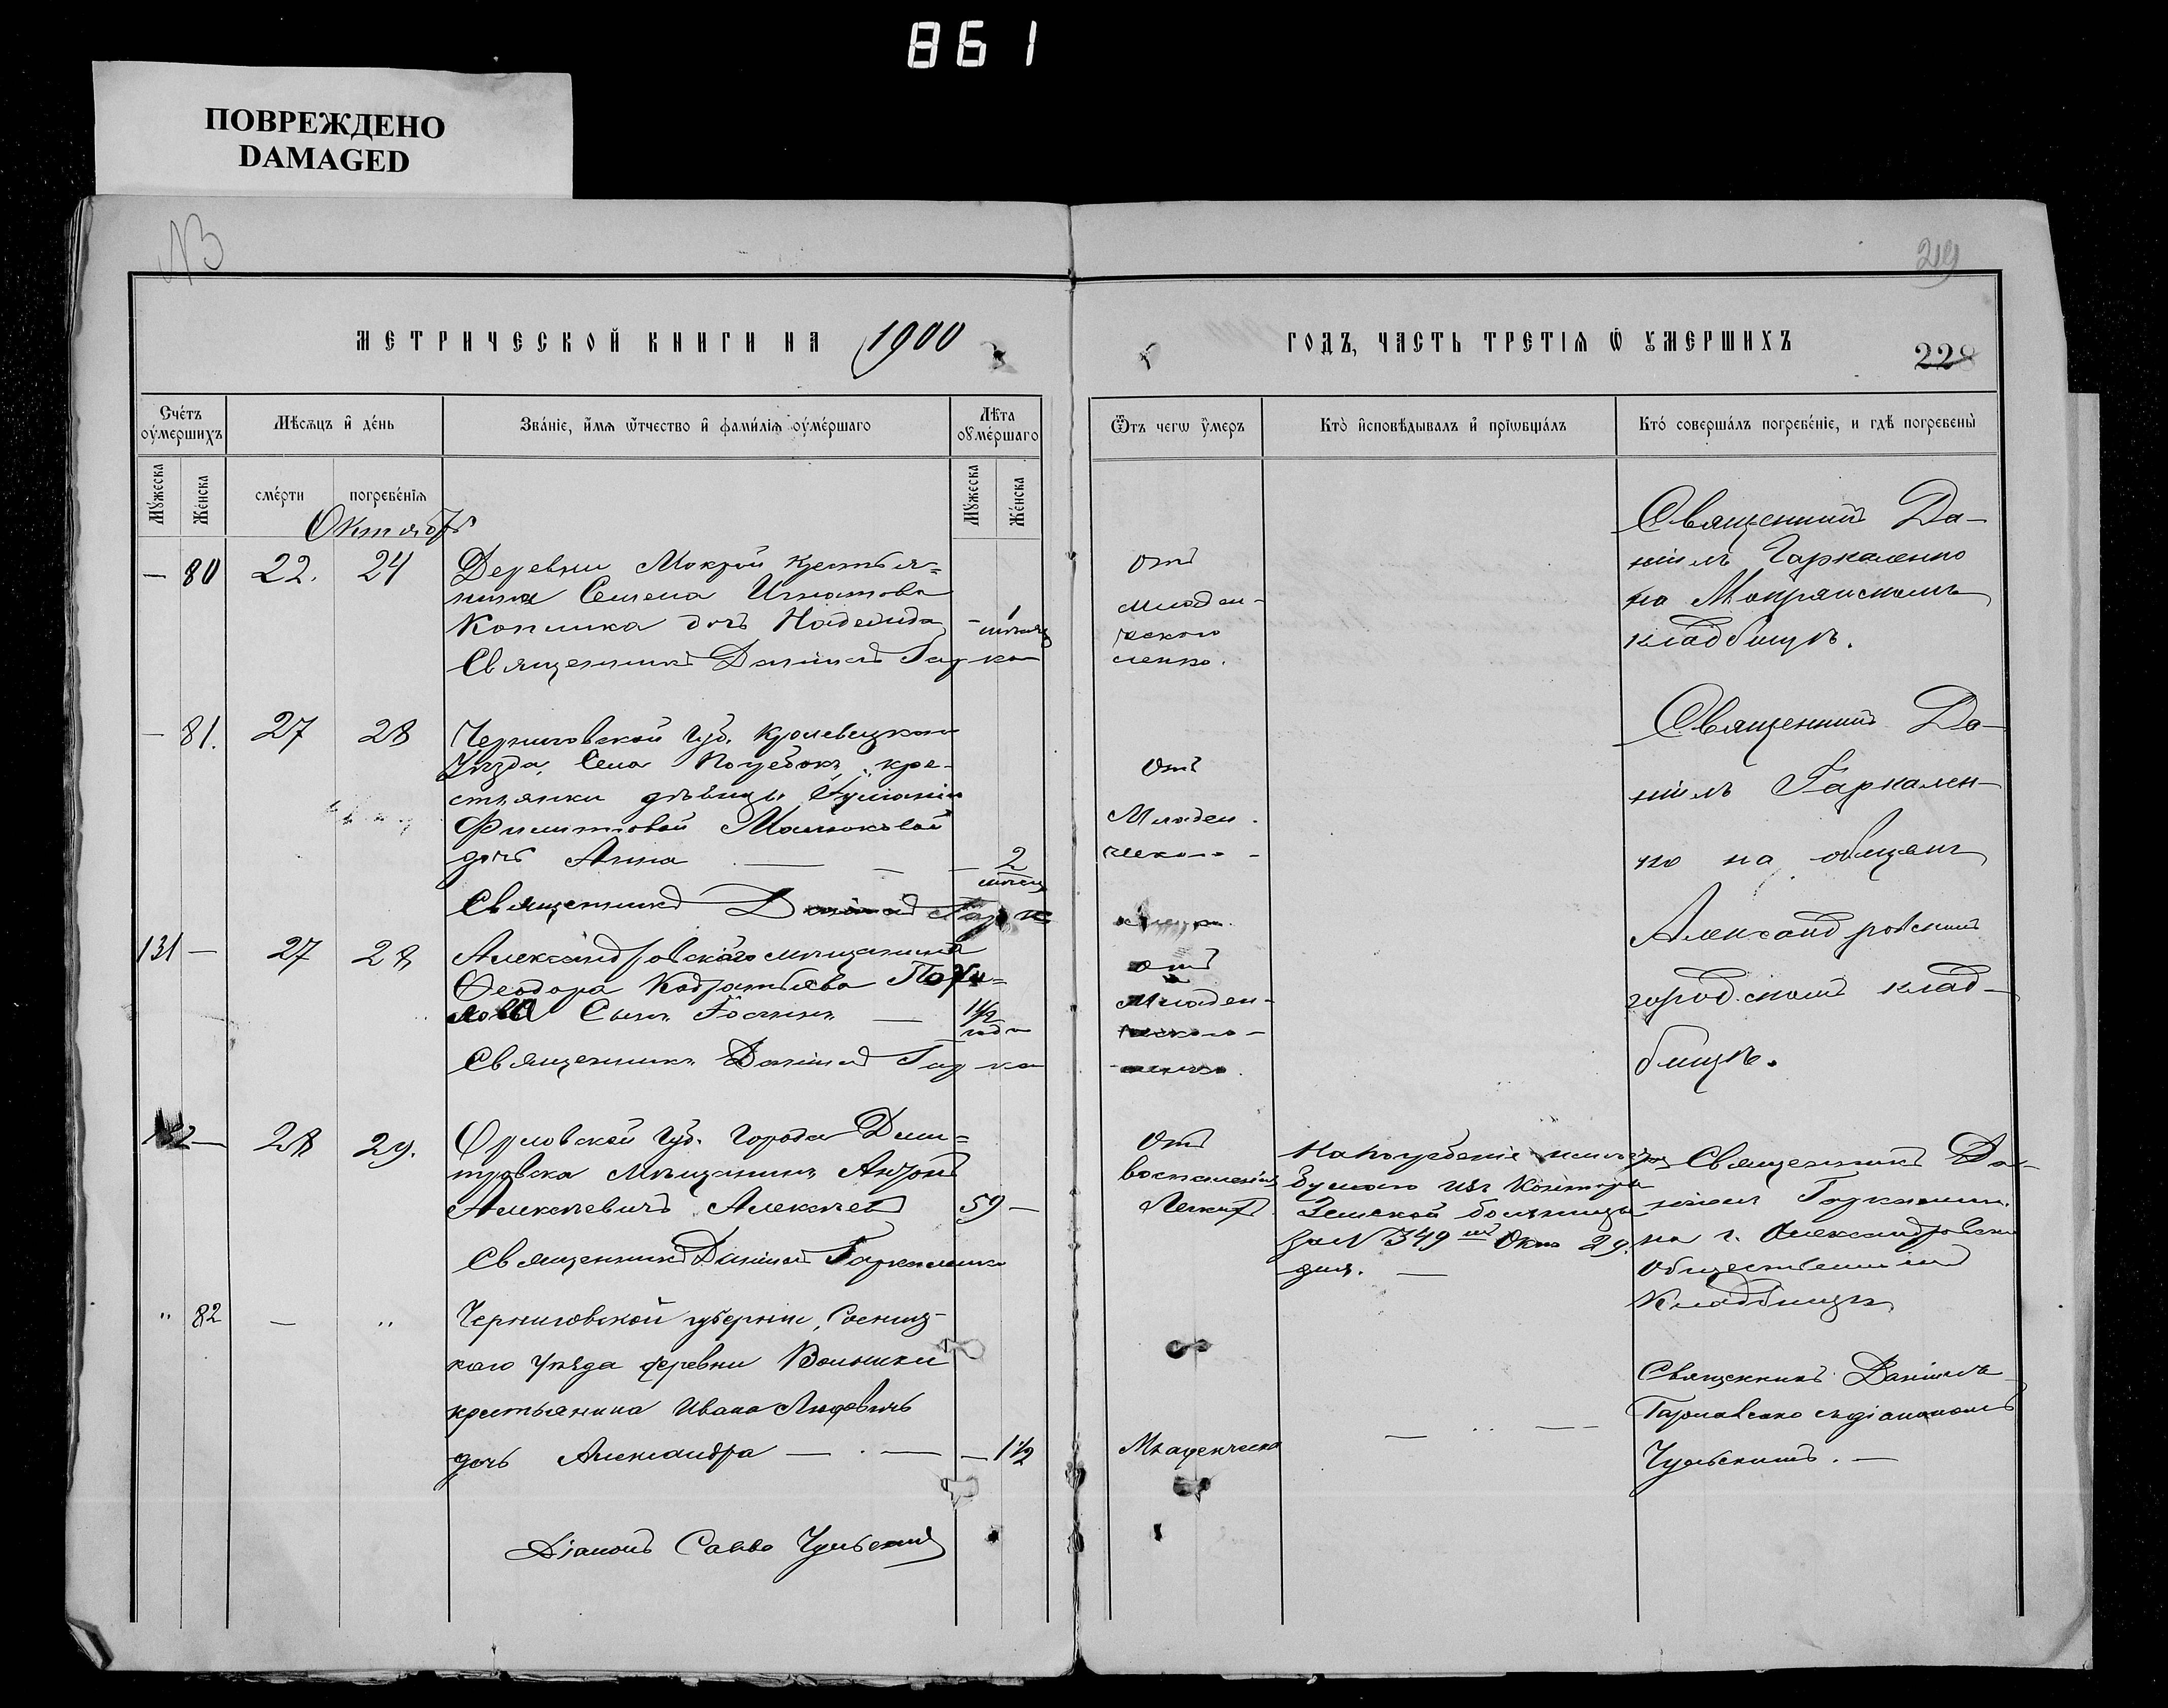 861
ПОВРЕЖДЕНО
DAMAGED
29
МЕТРИЧЕСКОЙ КНИГИ НА 1900
ГОДЪ, ЧАСТЬ ТРЕТІЯ Ѿ УМЕРШИХЪ
228
Счетъ умершихъ
Мѣсяцъ и день
Званіе, имя отчество и фамилія умершаго
Лѣта умершаго
Отъ чего умеръ
Кто исповѣдывалъ и пріобщалъ
Кто совершалъ погребеніе, и гдѣ погребены
Мужеска
Женска
смерти
погребенія
Мужеска
Женска
Октябрь
— 80 22. 24
Деревни Мокрой крестья=
нина Семена Игнатова
Коплика дочь Надежда — 1 мѣсяц
Священникъ Даніилъ Гарка
Отъ
младен-
ческого
ленко.
Священникъ Да-
ніилъ Гаркаленко
на Мокрянскомъ
кладбищѣ.
— 81. 27 28
Черниговской Губ. Кролевецкаго
Уѣзда, Села кре-
стьянки дѣвицы
Филипповой
дочь Анна — 2 мѣсяц
Священникъ Даніилъ Гарка
Отъ
Младен-
ческого
Священникъ Да-
ніилъ Гаркален-
ко на общемъ
Александровскомъ
городскомъ клад-
бищѣ.
131 — 27 28
Александровскаго мѣщанина
Феодора Кодратьева
Сынъ — 1½ года
Священникъ Даніилъ Гарка
отъ
Младен-
ческого
ленко.
132 — 28 29.
Орловской Губ. города Дми=
тровска Мѣщанинъ Андрей
Алексѣевичъ Алексѣев 59 —
Священникъ Даніилъ Гаркаленко
Отъ
воспаленія
Легкихъ
На погребеніе
бумага изъ Конторы
Земской больницы
за № 349 Окт 29
дня. —
Священникъ Да-
ніилъ Гаркаленко
на г. Александровска
общественномъ
Кладбищѣ
" 82 — "
Черниговской губерніи, Сосниц-
каго уѣзда деревни Волынки
крестьянина Ивана
дочь Александра — . — — 1½
Младенческ
— .. —
Священникъ Даніилъ
Гаркаленко съ діакономъ
Чульскимъ. —
Діаконъ Савва Чульскій